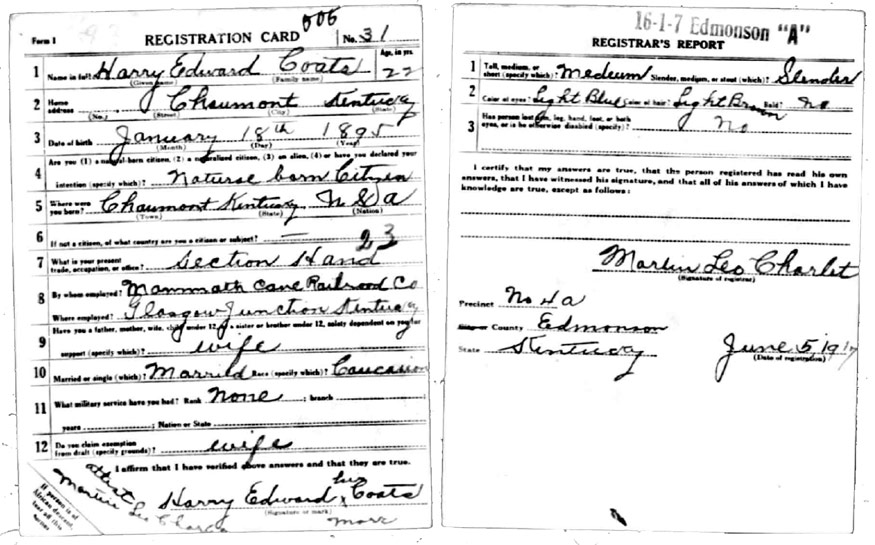 506
Form 1 REGISTRATION CARD No. 31
Age, in yrs.
1 Name in full Harry Edward Coats 22
(Given name) (Family name)
2 Home address Chaumont Kentucky
(No.) (Street) (City) (State)
3 Date of birth January 18th 1895
(Month) (Day) (Year)
Are you (1) a natural-born citizen, (2) a naturalized citizen, (3) an alien, (4) or have you declared your
4 intention (specify which)? Natural born Citizen
5 Where were you born? Chaumont Kentucky U S A
(Town) (State) (Nation)
6 If not a citizen, of what country are you a citizen or subject? —
23
7 What is your present trade, occupation, or office? Section Hand
8 By whom employed? Mammath Cave Railroad Co
Where employed? Glasgow Junction Kentucky
Have you a father, mother, wife, child under 12, or a sister or brother under 12, solely dependent on you for
9 support (specify which)? wife
10 Married or single (which)? Married Race (specify which)? Caucasion
11 What military service have you had? Rank None ; branch
years ; Nation or State
12 Do you claim exemption from draft (specify grounds)? wife
I affirm that I have verified above answers and that they are true.
attest
Martin Leo
Harry Edward his x Coats
(Signature or mark)
mark
If person is of
African descent,
tear off this
corner
16-1-7 Edmonson "A"
REGISTRAR'S REPORT
1 Tall, medium, or short (specify which)? Medium Slender, medium, or stout (which)? Slender
2 Color of eyes? Light Blue Color of hair? Light Brown Bald? No
3 Has person lost arm, leg, hand, foot, or both eyes, or is he otherwise disabled (specify)? No
I certify that my answers are true, that the person registered has read his own
answers, that I have witnessed his signature, and that all of his answers of which I have
knowledge are true, except as follows:
Martin Leo Charlet
(Signature of registrar)
Precinct No 4a
City or County Edmonson
State Kentucky June 5, 1917
(Date of registration)